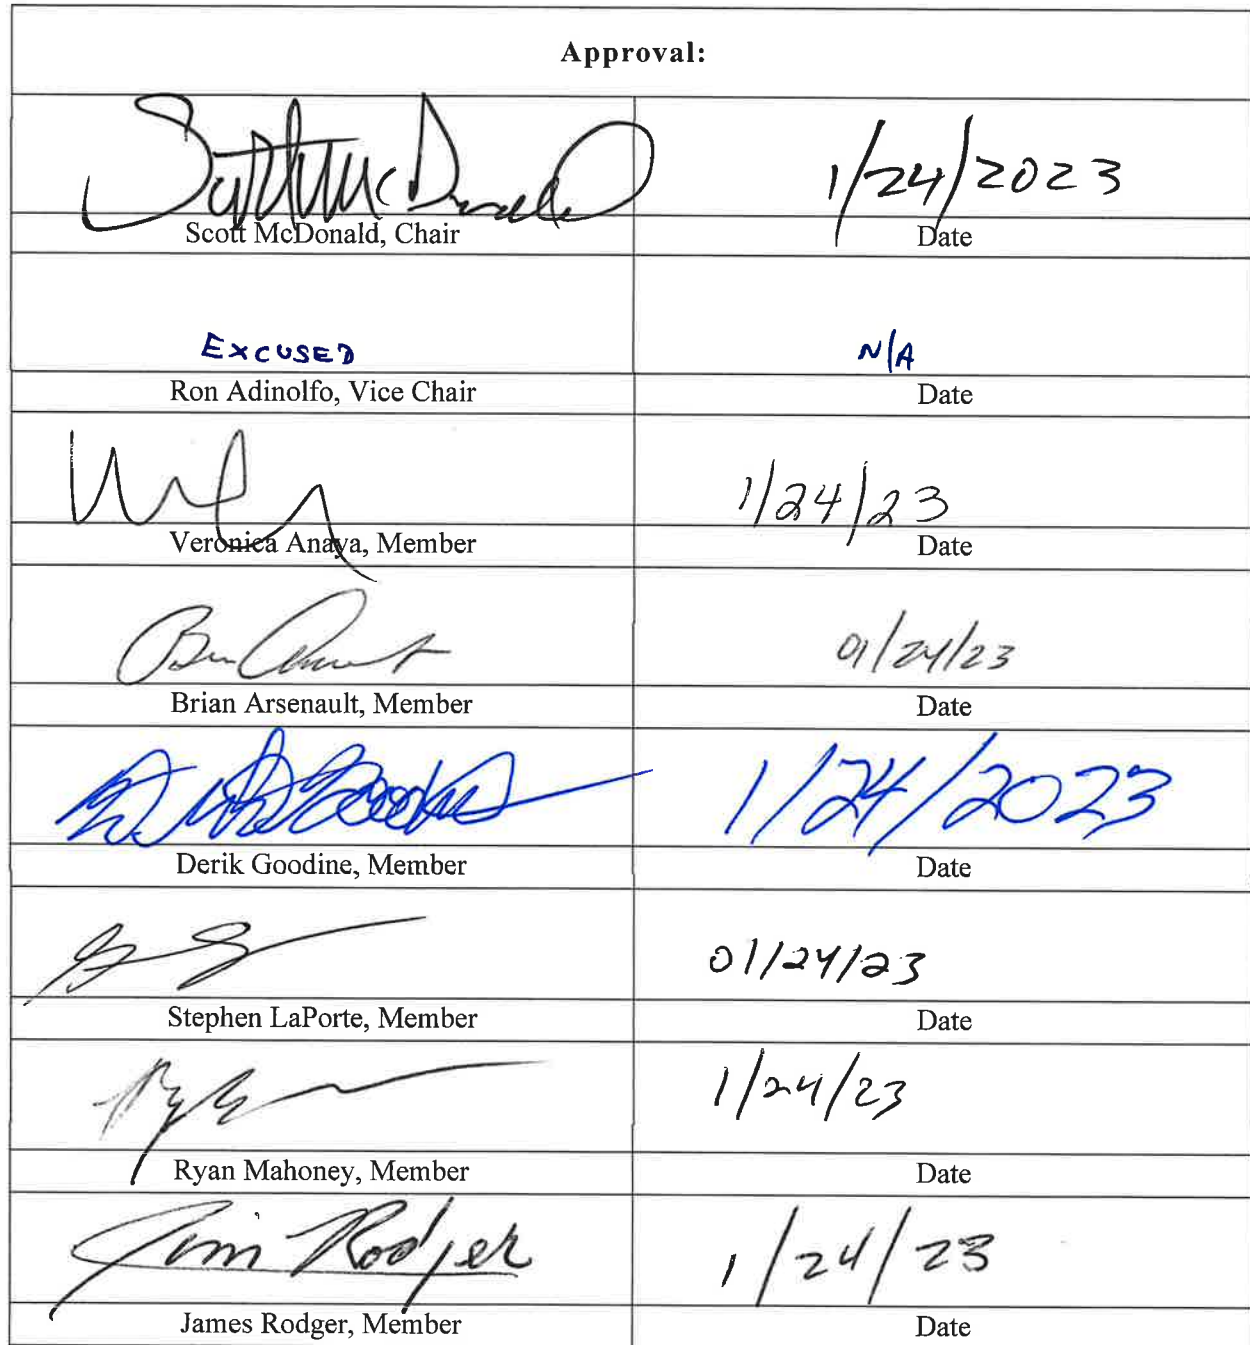 Approval:
Scott McDonald 1/24/2023
Scott McDonald, Chair Date
EXCUSED N/A
Ron Adinolfo, Vice Chair Date
1/24/23
Veronica Anaya, Member Date
01/24/23
Brian Arsenault, Member Date
1/24/2023
Derik Goodine, Member Date
01/24/23
Stephen LaPorte, Member Date
1/24/23
Ryan Mahoney, Member Date
Jim Rodger 1/24/23
James Rodger, Member Date